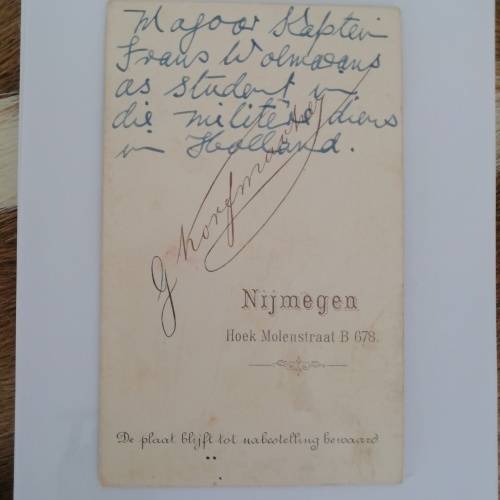 Majoor Kaptein
Frans Wolmarans
as student in
die militêre diens
in Holland.
G Korfmacher
Nijmegen
Hoek Molenstraat B 678.
De plaat blijft tot nabestelling bewaard